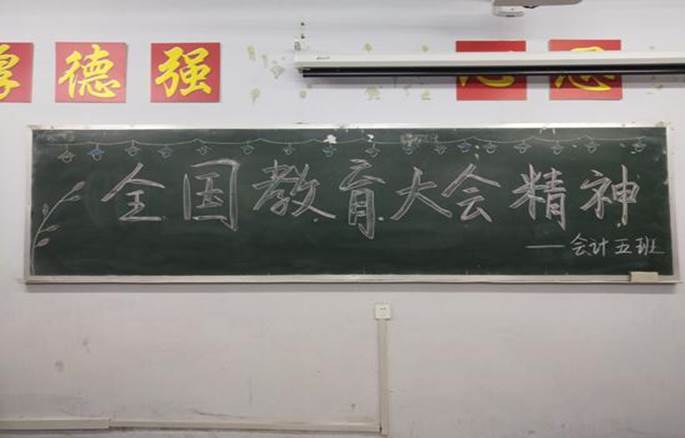 厚德强
全国教育大会精神
——会计五班